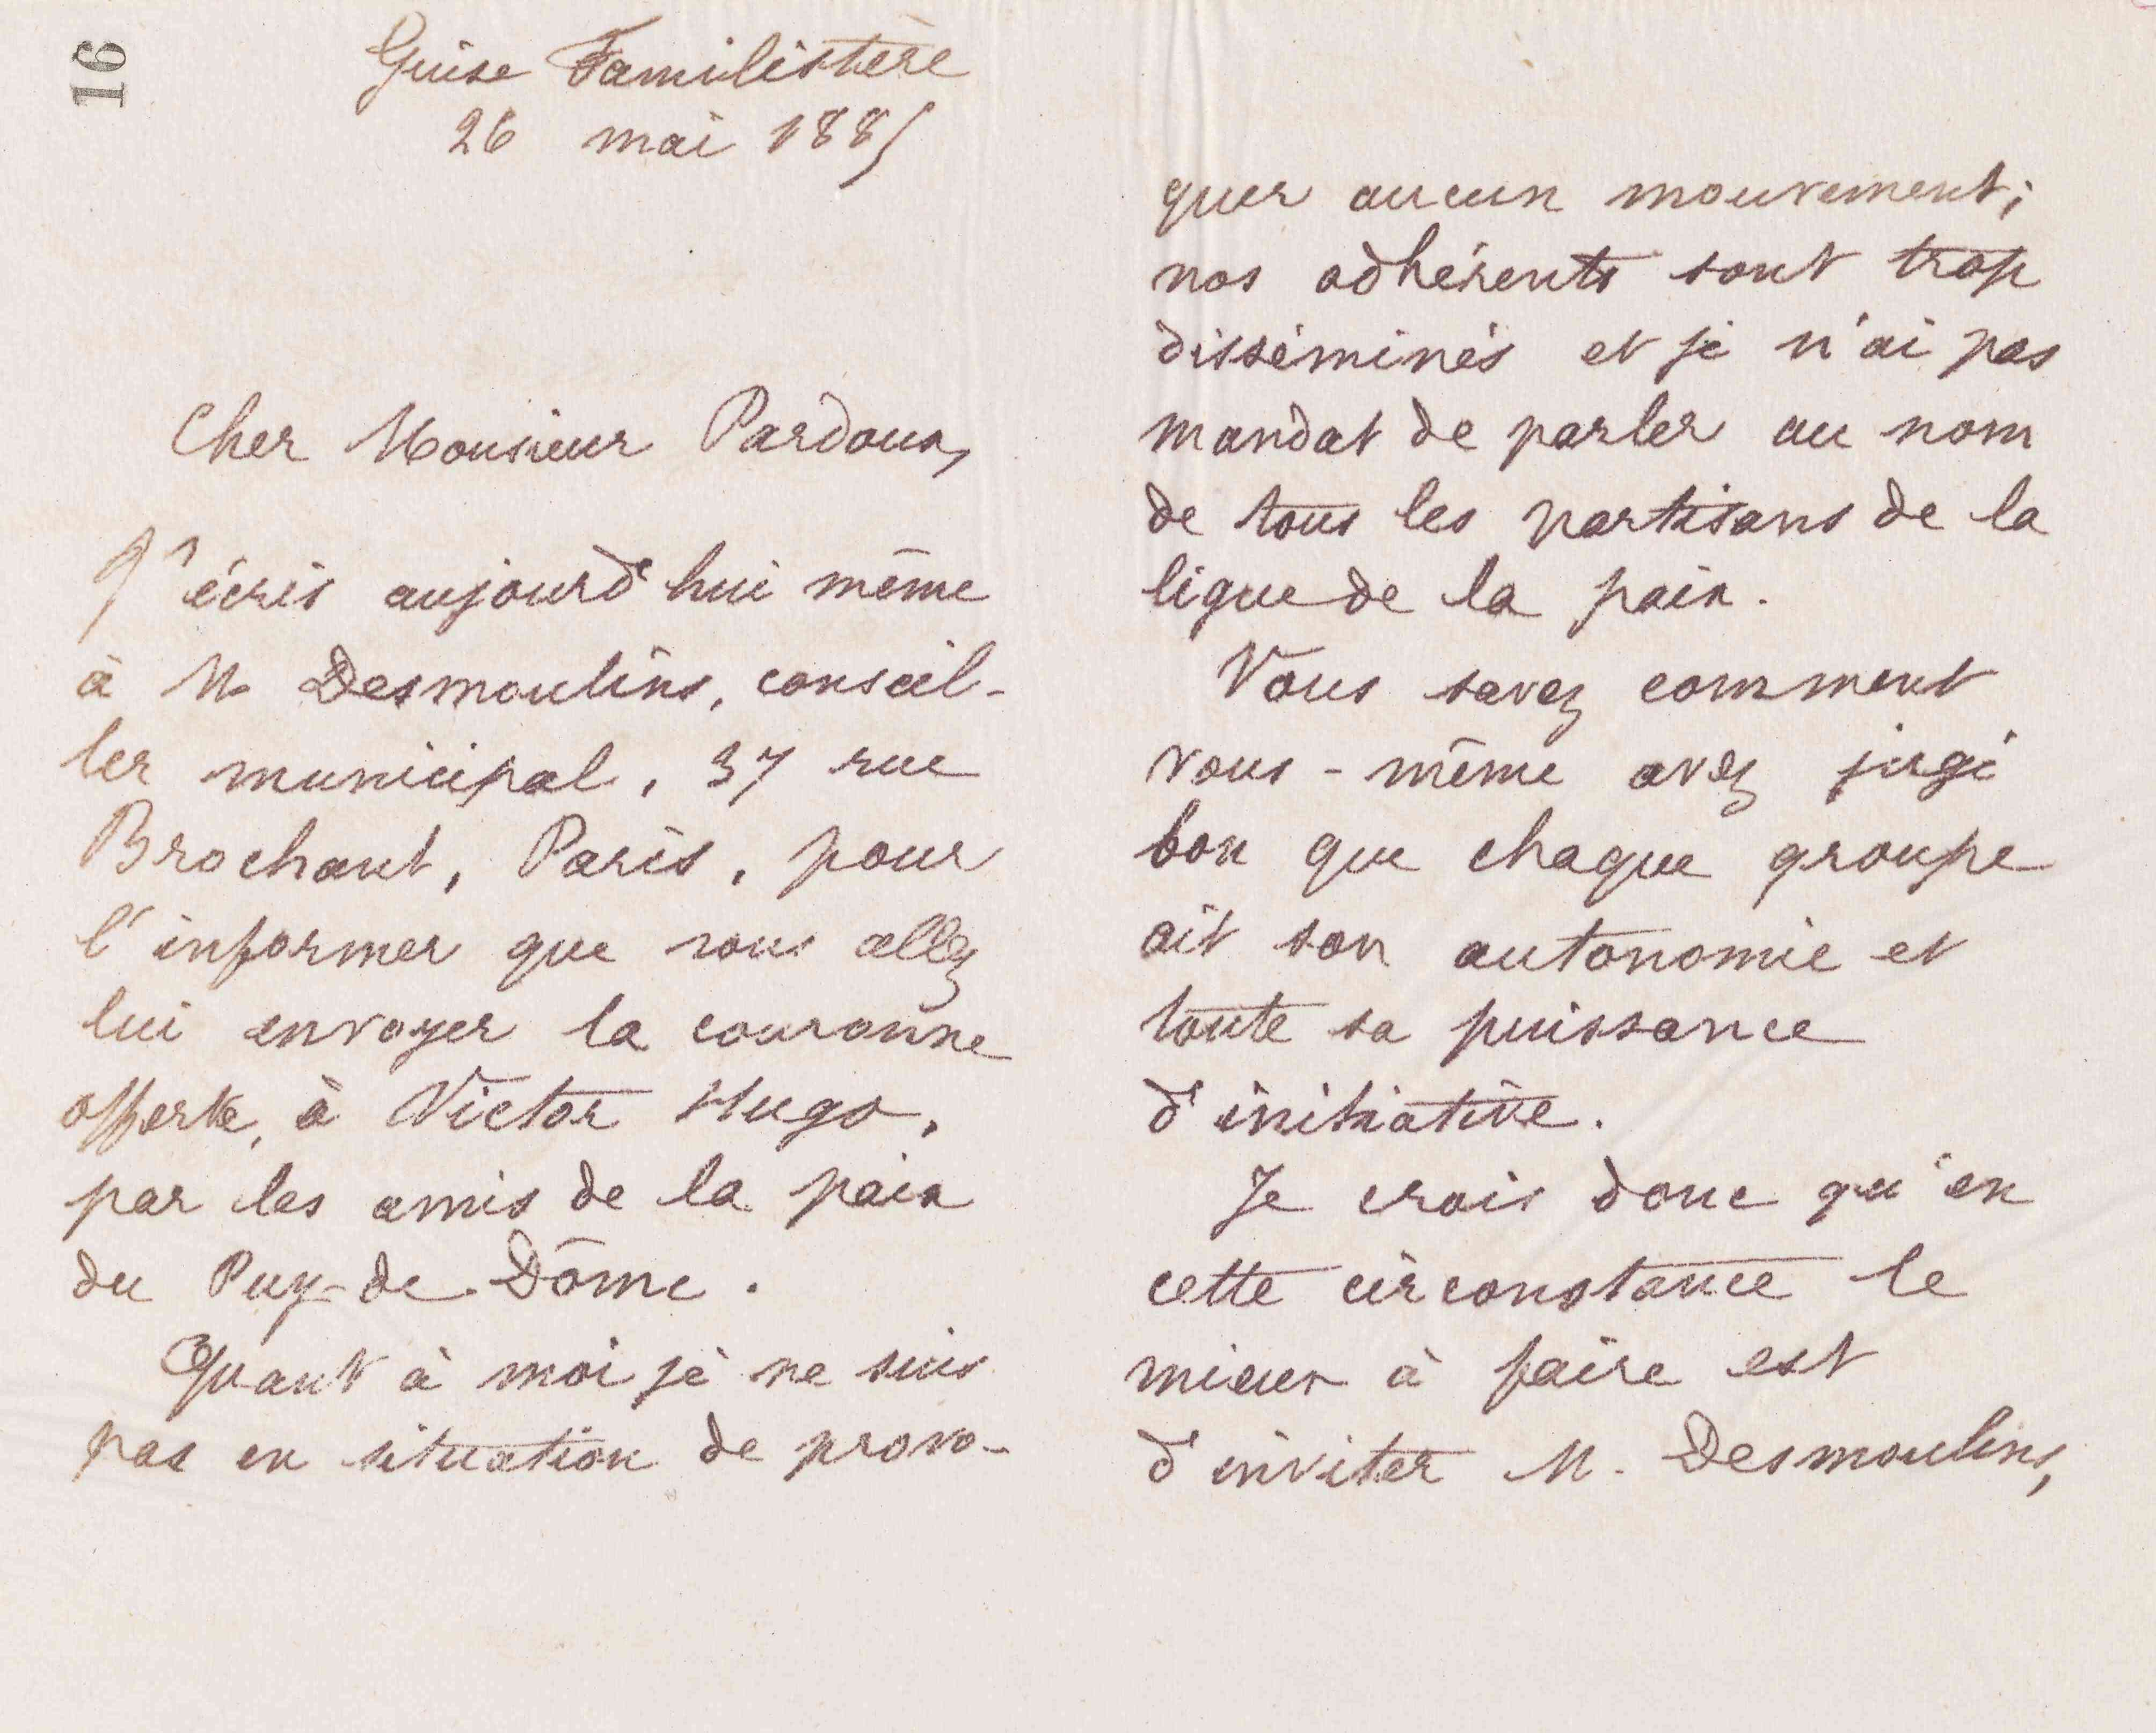 16
Guise Familistère
26 mai 1885
Cher Monsieur Pardoux,
J'écris aujourd'hui même
à M. Desmoulins, conseil-
ler municipal, 37 rue
Brochant, Paris, pour
l'informer que vous allez
lui envoyer la couronne
offerte, à Victor Hugo,
par les amis de la paix
du Puy-de-Dôme.
Quant à moi je ne suis
pas en situation de provo-
quer aucun mouvement;
nos adhérents sont trop
disséminés et je n'ai pas
mandat de parler au nom
de tous les partisans de la
ligue de la paix.
Vous savez comment
vous-même avez jugé
bon que chaque groupe
ait son autonomie et
toute sa puissance
d'initiative.
Je crois donc qu'en
cette circonstance le
mieux à faire est
d'inviter M. Desmoulins,